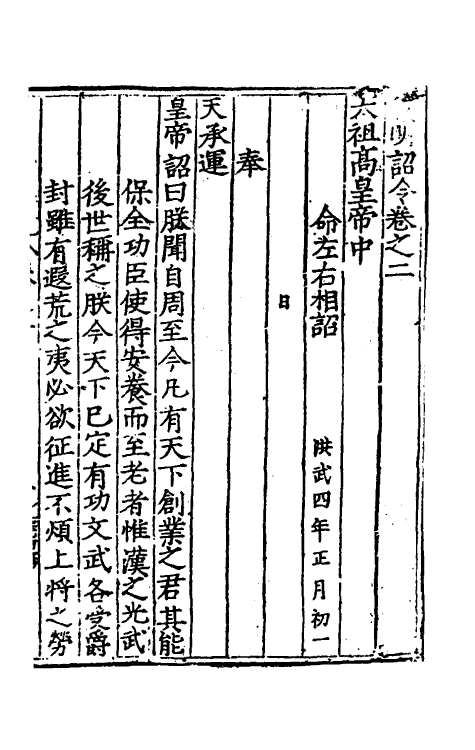 詔令卷之二
太祖高皇帝中
命左右相詔 洪武四年正月初一
日
奉
天承運
皇帝詔曰朕聞自周至今凡有天下創業之君其能
保全功臣使得安養而至老者惟漢之光武
後世稱之朕今天下已定有功文武各受爵
封雖有遐荒之夷必欲征進不煩上將之勞